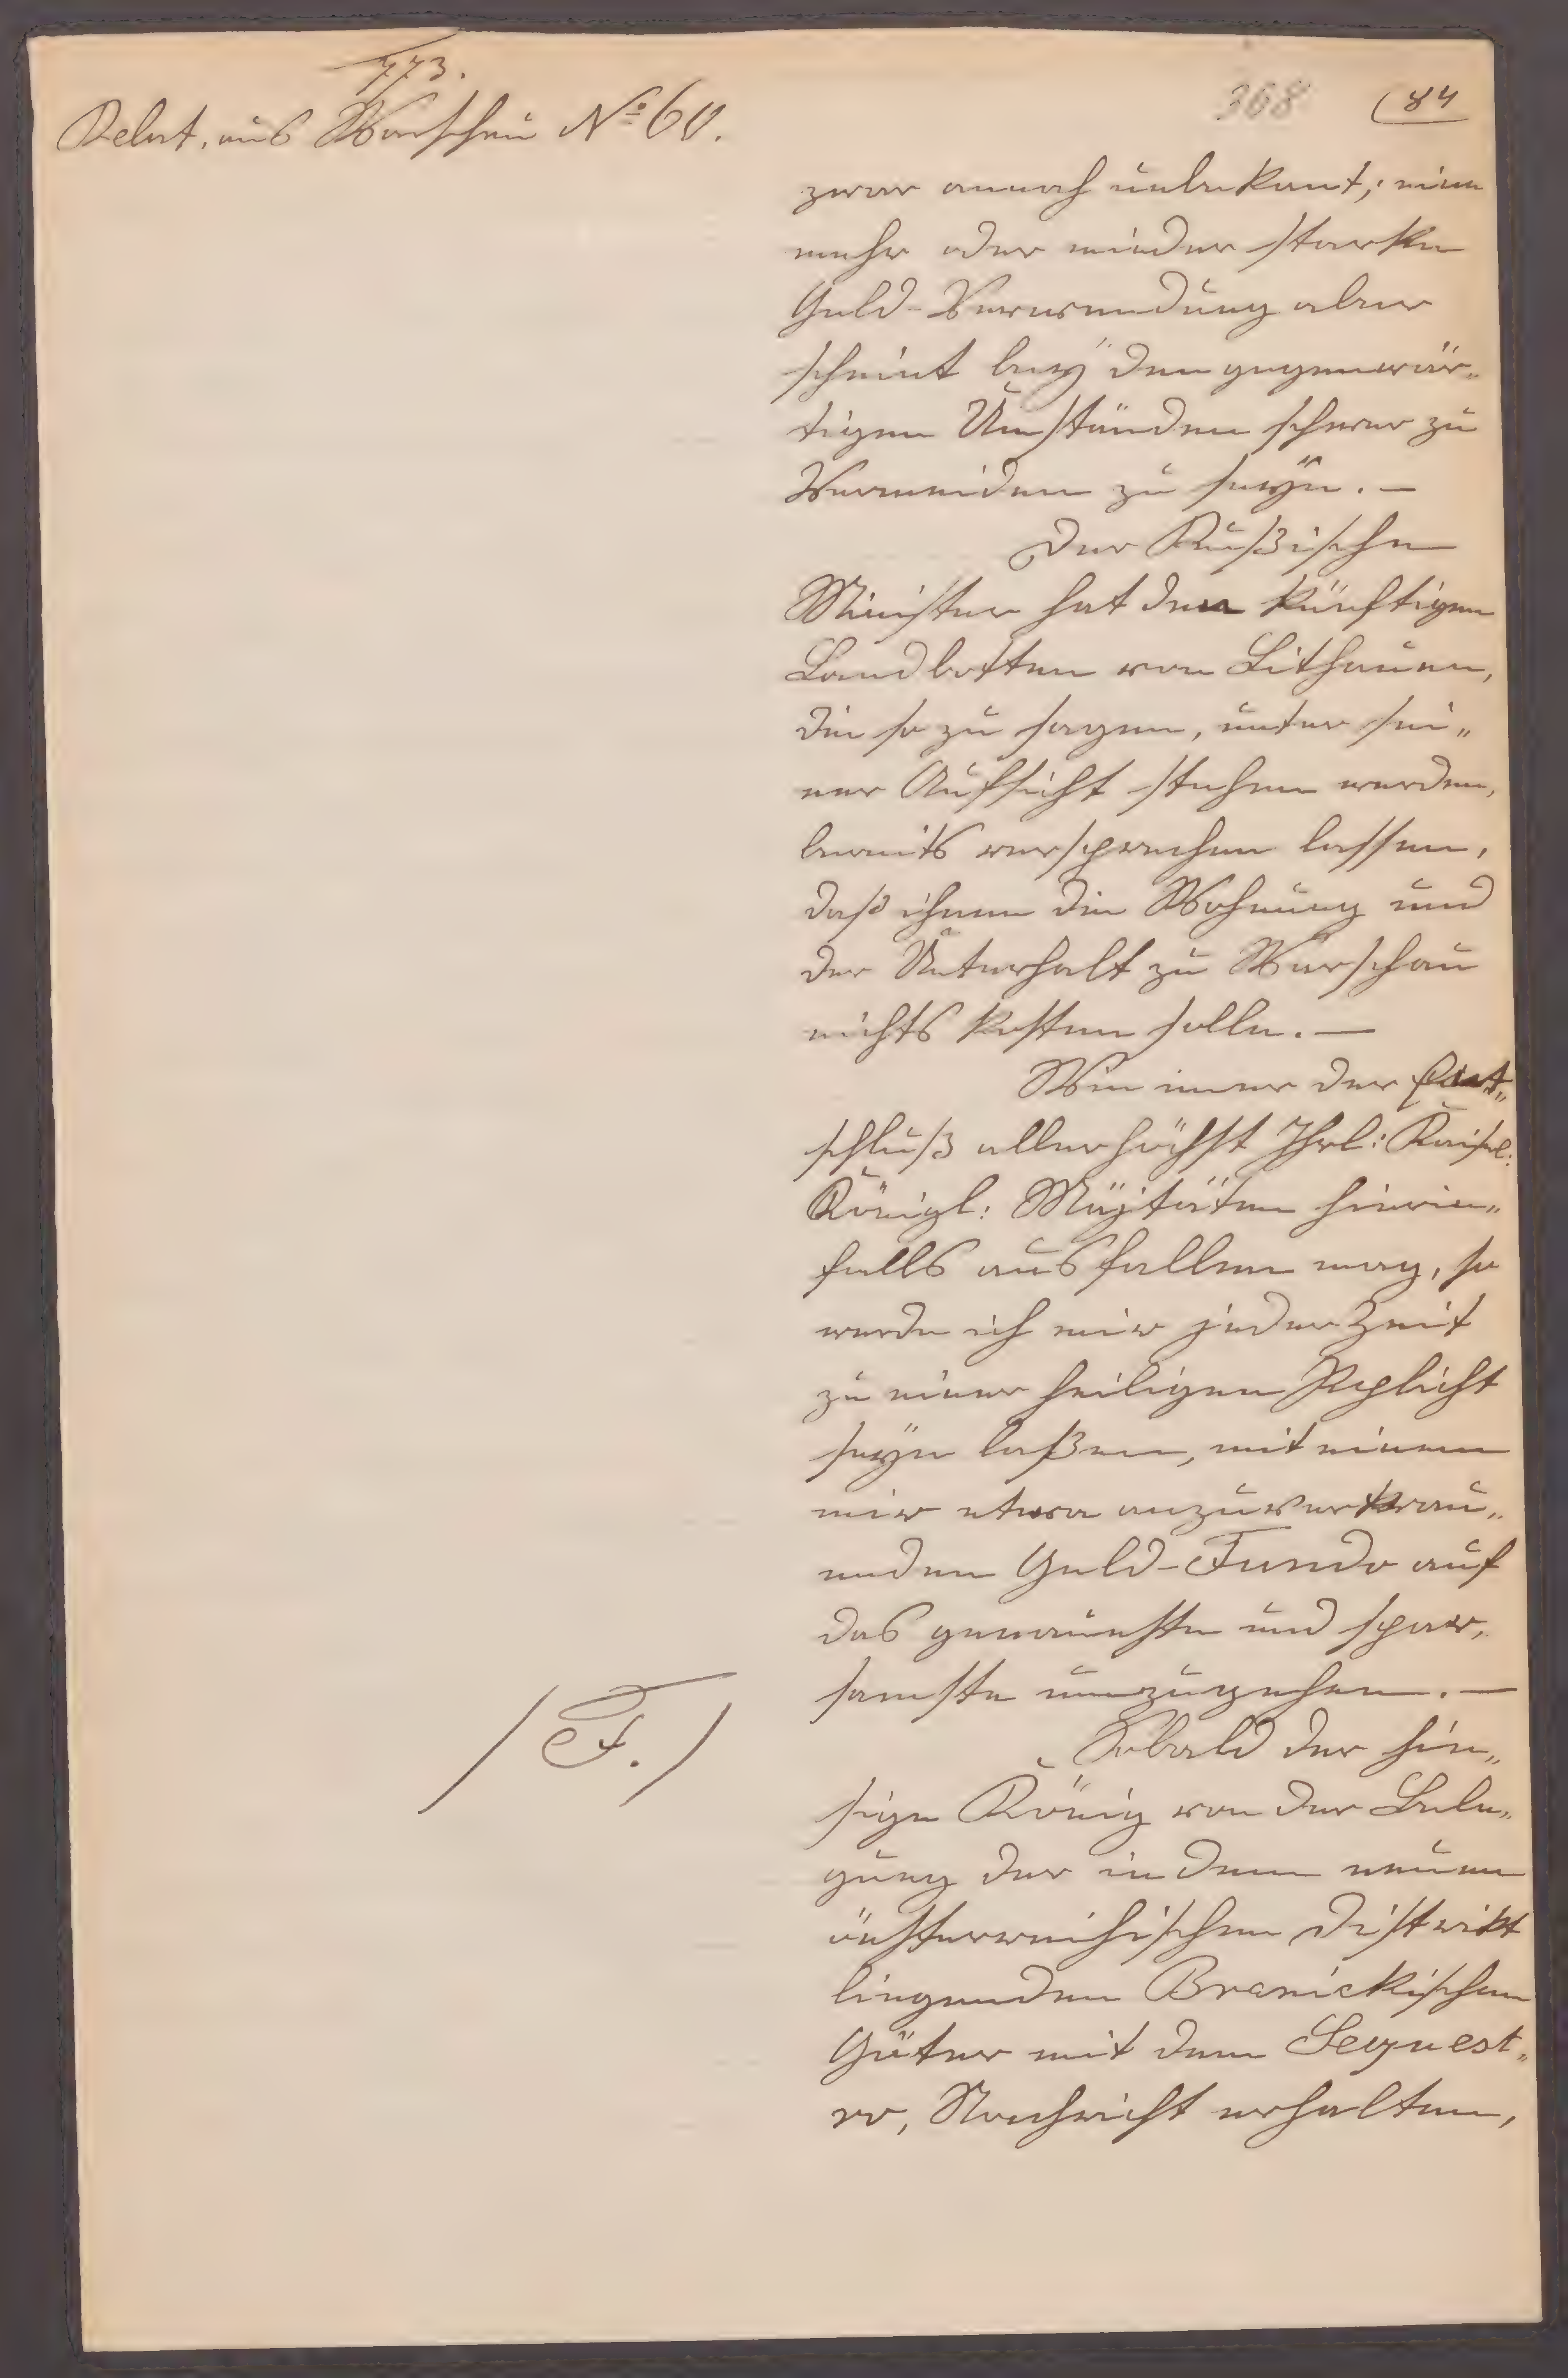 773.
Relat. aus Warschau No 60.
368 (84
zwar annoch unbekant; eine
mehr oder minder starke
Geld-Verwendung aber
scheint beÿ den gegenwär„
tigen Umständen schwer zu
Vermeiden zu seÿn. —
Der Rußische
Minister hat den künftigen
Landbotten von Lithauen,
die so zu sagen, unter sei„
ner Aufsicht stehen werden,
bereits versprechen lassen,
daß ihnen die Wohnung und
der Unterhalt zu Warschau
nichts kosten solle. —
Wie imer der Ent„
schluß allerhöchst Ihrl: Kaisel:
Königl: Majtäten hierin„
falls ausfallen mag, so
werde ich mir jeder Zeit
zu einer heiligen Pflicht
seÿn laßen, mit einem
mir etwa anzuvertrau„
enden Geld-Fundo auf
das genaueste und spar„
samste umzugehen. —
/F./
Sobald der hie„
sige König von der Bele„
gung der in dem neuen
öesterreichischen District
liegenden Branickischen
Güter mit dem Sequest„
ro, Nachricht erhalten,